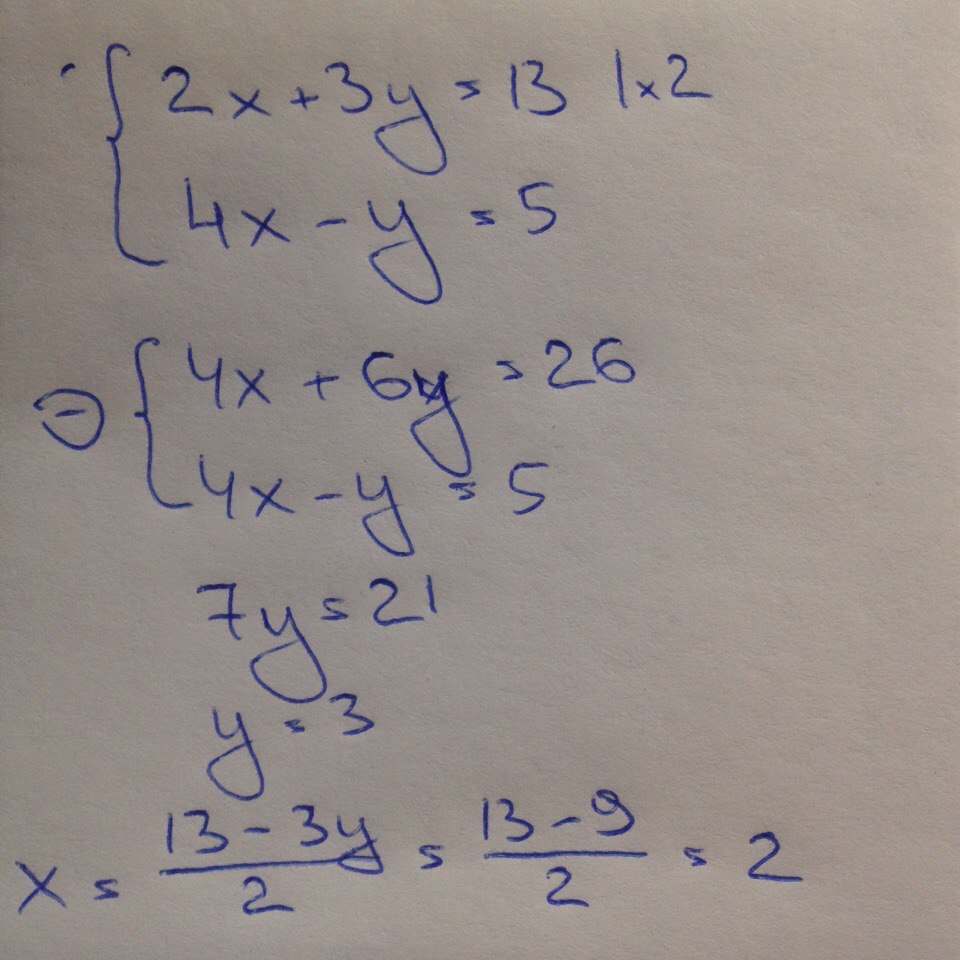 2x + 3y = 13 | x2
4x - y = 5
⊖ 4x + 6y = 26
4x - y = 5
7y = 21
y = 3
x = (13 - 3y)/2 = (13 - 9)/2 = 2